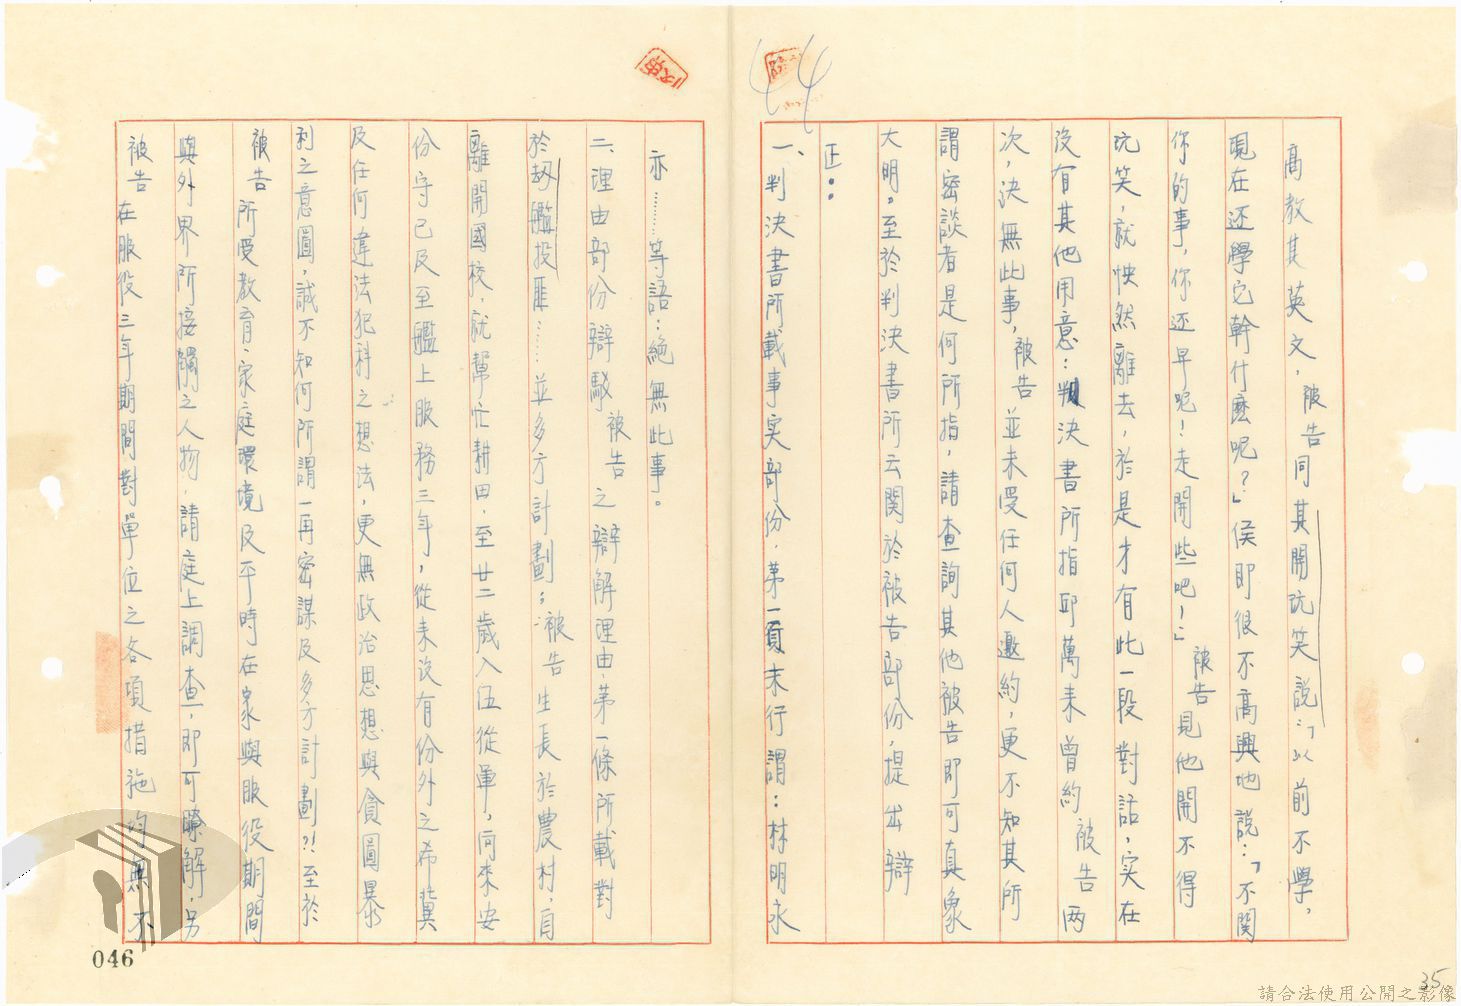 44
高教其英文，被告同其開玩笑說：「以前不學，
現在还學它幹什麽呢？」侯即很不高興地說：「不関
你的事，你还早呢！走開些吧！」被告見他開不得
玩笑，就怏然離去，於是才有此一段對話，实在
沒有其他用意：判决書所指邱萬来曾約被告两
次，决無此事，被告並未受任何人邀約，更不知其所
謂密談者是何所指，請查詢其他被告即可真象
大明。至於判决書所云関於被告部份，提出辯
正：
一、判决書所載事实部份，第一頁末行謂：林明永
亦………等語：絶無此事。
二、理由部份辯駁被告之辯解理由，第一條所載對
於刼艦投匪……並多方計劃；被告生長於農村，自
離開國校，就幫忙耕田，至廿二歲入伍從軍，向來安
份守己及至艦上服務三年，從未沒有份外之希冀
及任何違法犯科之想法，更無政治思想與貪圖暴
利之意圖，誠不知何所謂一再密謀及多方計劃？！至於
被告所受教育、家庭環境及平時在家與服役期間
與外界所接觸之人物，請庭上調查，即可瞭解，另
被告在服役三年期間對單位之各項措施均無不
046
35
請合法使用公開之影像